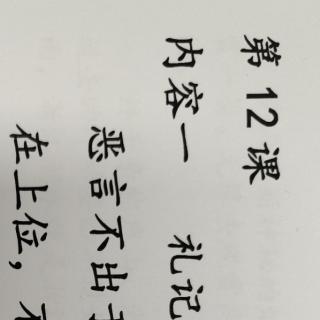 第12课
内容一 礼记
恶言不出于
在上位，